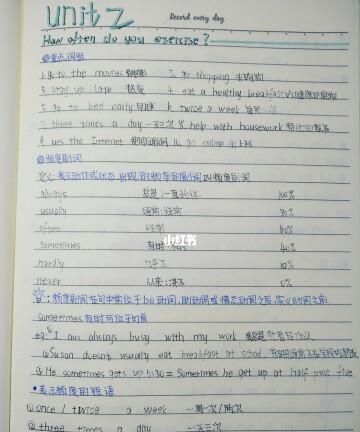 Unit 2
Record every day
How often do you exercise?
重点词组
1. go to the movies 2. go shopping 去购物
3. stay up late 熬夜 4. eat a healthy breakfast
5. go to bed early 早睡 6. twice a week 每周二次
7. three times a day 一天三次 8. help with housework
9. use the Internet 10. go online
频度副词
定义:表示动作或状态出现的频率的副词叫频度副词
always 总是;一直 100%
usually 通常;经常 80%
often 经常 60%
sometimes 有时 40%
小红书
hardly 几乎不 10%
never 从来;没有 0%
注:频度副词在句中常位于be动词,助动词或情态动词之后,实义动词之前
Sometimes有时可位于句首
eg: I am always busy with my work
Susan doesn't usually eat breakfast at school
He sometimes gets up 5:30 = Sometimes he get up at half past five
表示频度的短语
once / twice a week 一周一次/两次
three times a day 一天三次